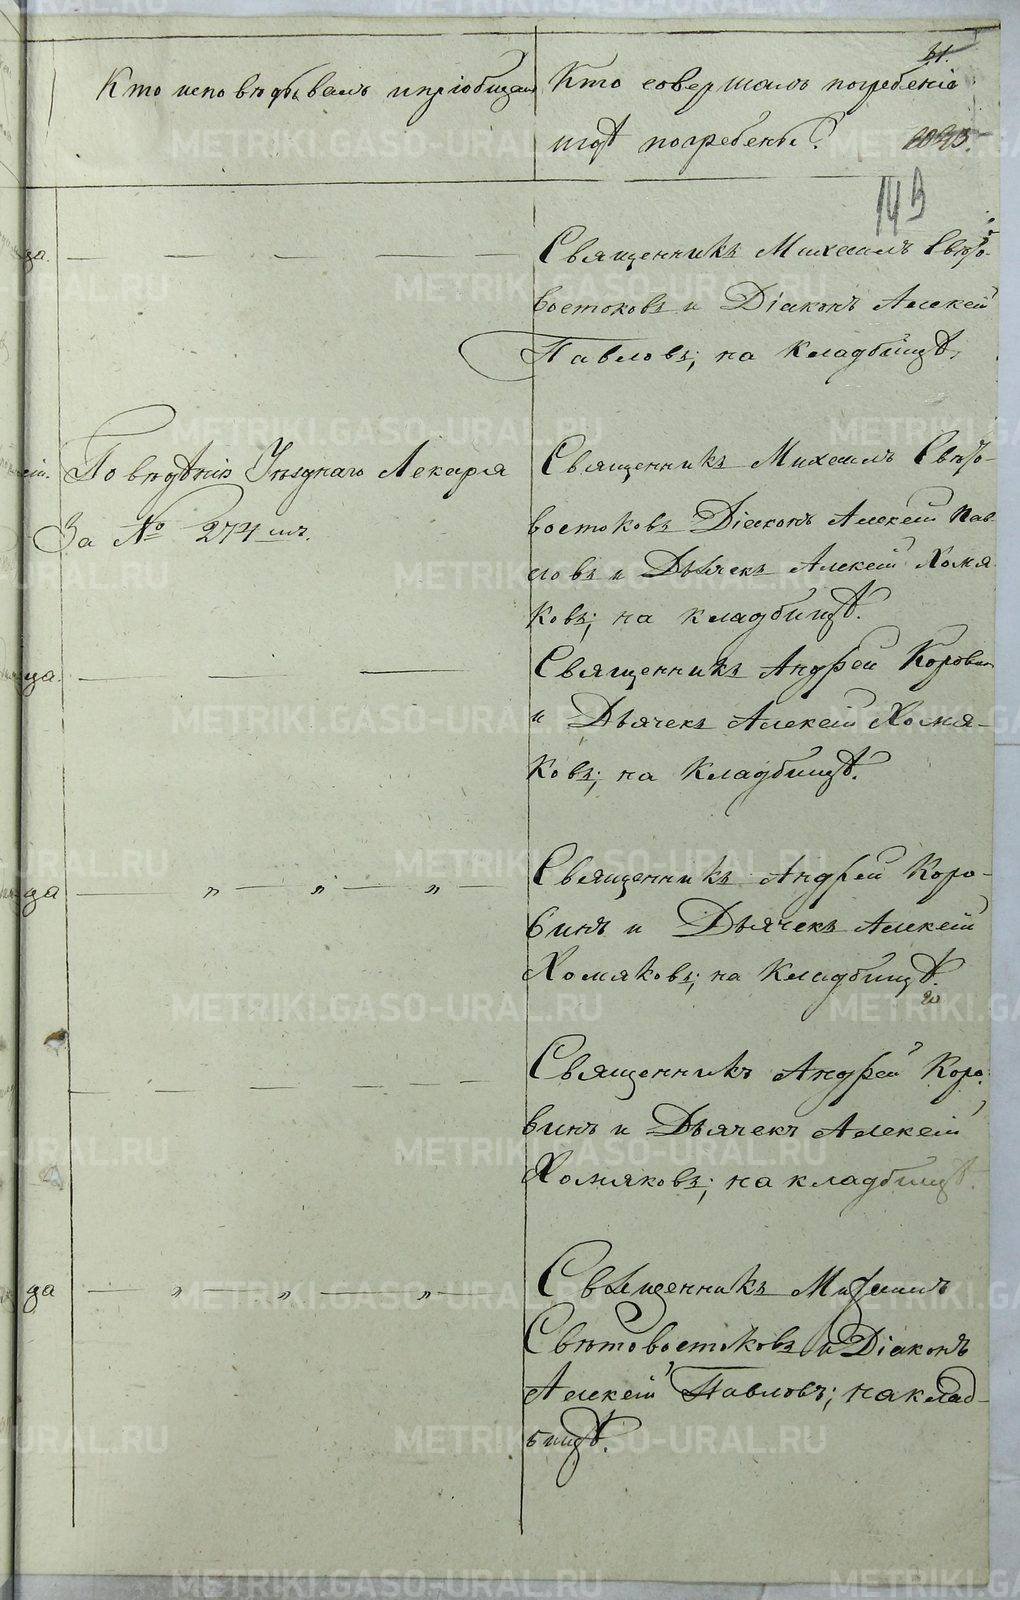 31.
Кто исповѣдывалъ и пріобщалъ
Кто совершалъ погребеніе
и гдѣ погребены?
143
да.
Священникъ Михаилъ Свѣто-
востоковъ и Діаконъ Алексѣй
Павловъ; на кладбищѣ.
По вѣдѣнію Уѣзднаго Лекаря
За № 274мъ.
Священникъ Михаилъ Свѣто-
востоковъ Діаконъ Алексѣй Пав-
ловъ и Дьячекъ Алексѣй Хомя-
ковъ; на кладбищѣ.
да.
Священникъ Андрей Коровинъ
и Дьячекъ Алексѣй Хомя-
ковъ; на кладбищѣ.
да
Священникъ Андрей Коро-
винъ и Дьячекъ Алексѣй
Хомяковъ; на кладбищѣ.
Священникъ Андрей Коро-
винъ и Дьячекъ Алексѣй
Хомяковъ; на кладбищѣ.
да
Священникъ Михаилъ
Свѣтовостоковъ и Діаконъ
Алексѣй Павловъ; на клад-
бищѣ.
METRIKI.GASO-URAL.RU